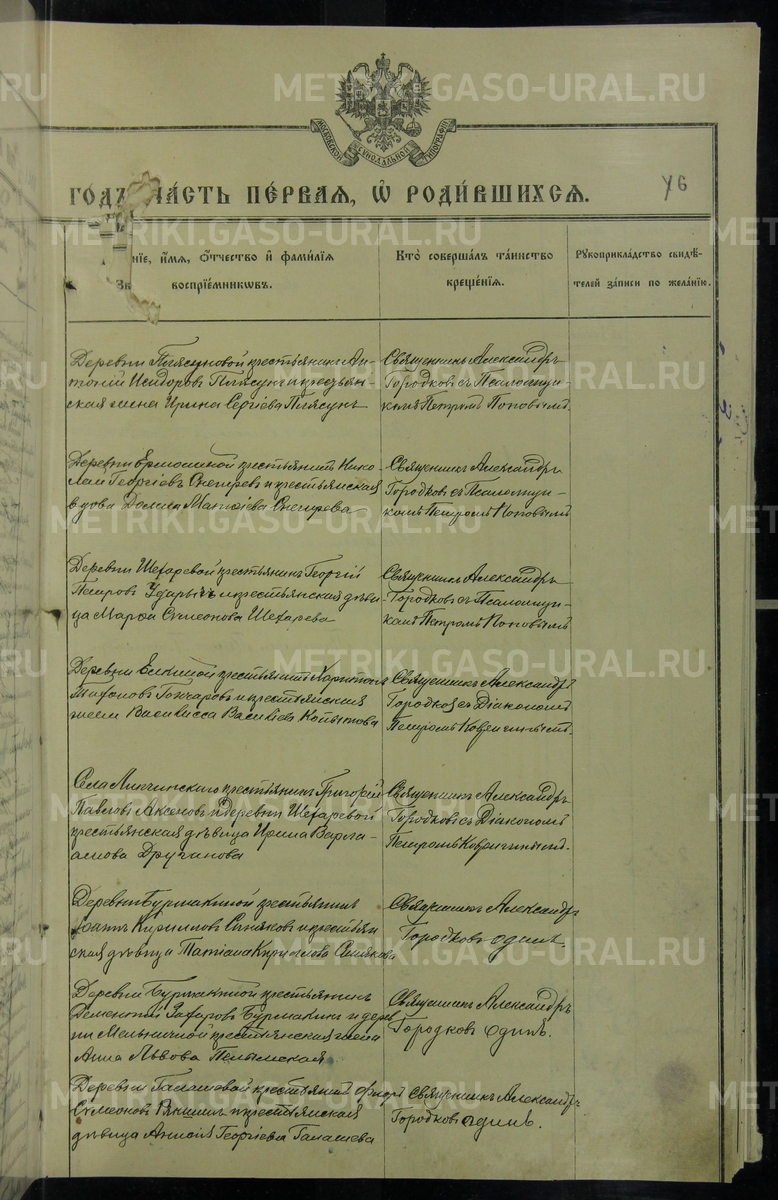 МОСКОВСКОЙ СѴНОДАЛЬНОЙ ТИПОГРАФІИ
ГО́ДЪ ЧА́СТЬ ПЕ́РВАЯ, Ѡ҆ РОДИ́ВШИХСЯ.
46
НІЕ, И҆́МЯ, Ѻ҆́ТЧЕСТВО И҆ ФАМИ́ЛІЯ
ВОСПРІЕ́МНИКѠВЪ.
КТО̀ СОВЕРША́ЛЪ ТА́ИНСТВО
КРЕЩЕ́НІЯ.
РꙋКОПРИКЛА́ДСТВО СВИДѢ́-
ТЕЛЕЙ ЗА́ПИСИ ПО ЖЕЛА́НІЮ.
Деревни Плясуновой крестьянинъ Ан-
тоній Исидоровъ Плясунъ и крестьян-
ская жена Ирина Сергіева Плясунъ
Священникъ Александръ
Городковъ съ Псаломщи-
комъ Петромъ Поповымъ.
Деревни Ермошиной крестьянинъ Нико-
лай Георгіевъ Снегиревъ и крестьянская
вдова Матѳіева Снегирева
Священникъ Александръ
Городковъ съ Псаломщи-
комъ Петромъ Поповымъ
Деревни Шехаревой крестьянинъ Георгій
Петровъ и крестьянская дѣви-
ца Марѳа Сѵмеонова Шехарева
Священникъ Александръ
Городковъ съ Псаломщи-
комъ Петромъ Поповымъ
Деревни крестьянинъ Харитонъ
Гончаровъ и крестьянская
жена Василисса Василіева Копытова
Священникъ Александръ
Городковъ съ Діакономъ
Петромъ
Села крестьянинъ Григорій
Павловъ Аксеновъ и деревни Шехаревой
крестьянская дѣвица Ирина Варла-
амова Дружинова
Священникъ Александръ
Городковъ съ Діакономъ
Петромъ
Деревни Бурмакиной крестьянинъ
Іоаннъ Кирилловъ Синяковъ и крестьян
ская дѣвица Татіана Кириллова Синякова
Священникъ Александръ
Городковъ одинъ.
Деревни Бурмакиной крестьянинъ
Дементій Захаровъ Бурмакинъ и дерев
ни Мельничной крестьянская жена
Анна Львова Пелымская
Священникъ Александръ
Городковъ одинъ.
Деревни Галашевой крестьянинъ
Сѵмеоновъ и крестьянская
дѣвица Анисія Георгіева Галашева
Священникъ Александръ
Городковъ одинъ.
METRIKI.GASO-URAL.RU